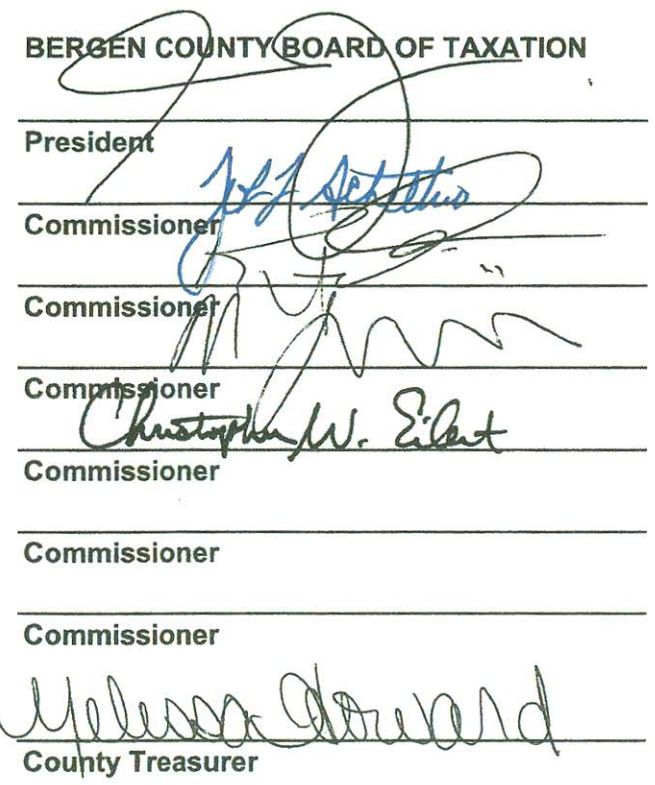 BERGEN COUNTY BOARD OF TAXATION
President
Commissioner
Commissioner
Commissioner
Christopher W. Eilert
Commissioner
Commissioner
Commissioner
Melissa Howard
County Treasurer